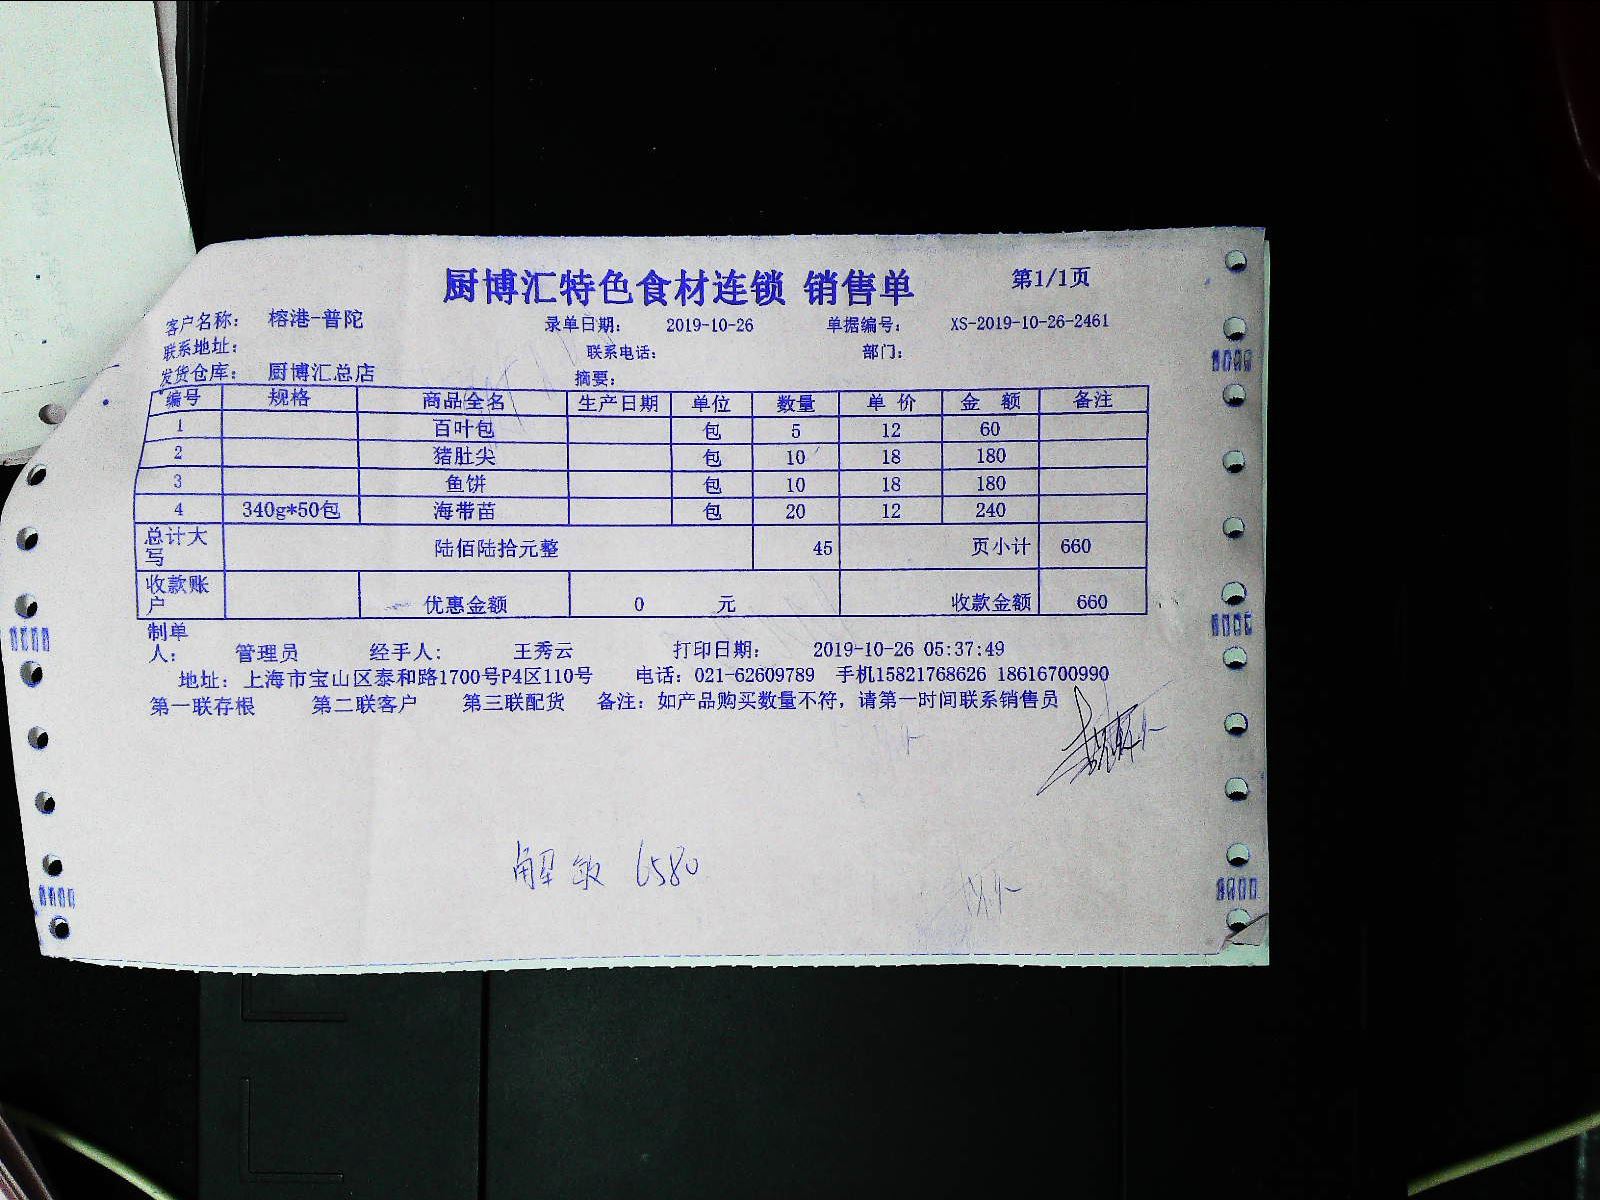 厨博汇特色食材连锁 销售单 第1/1页
客户名称: 榕港-普陀 录单日期: 2019-10-26 单据编号: XS-2019-10-26-2461
联系地址: 联系电话: 部门:
发货仓库: 厨博汇总店 摘要:
编号 规格 商品全名 生产日期 单位 数量 单 价 金 额 备注
1 百叶包 包 5 12 60
2 猪肚尖 包 10 18 180
3 鱼饼 包 10 18 180
4 340g*50包 海带苗 包 20 12 240
总计大写 陆佰陆拾元整 45 页小计 660
收款账户 优惠金额 0 元 收款金额 660
制单人: 管理员 经手人: 王秀云 打印日期: 2019-10-26 05:37:49
地址: 上海市宝山区泰和路1700号P4区110号 电话: 021-62609789 手机15821768626 18616700990
第一联存根 第二联客户 第三联配货 备注: 如产品购买数量不符, 请第一时间联系销售员
解敏 6580